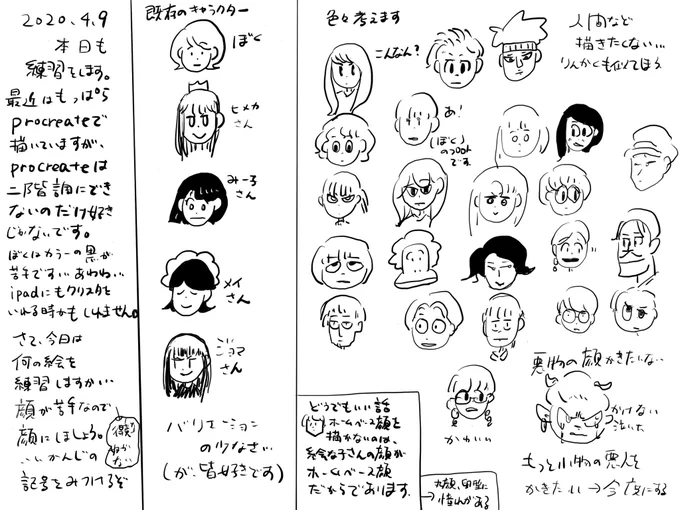 2020.4.9
本日も
練習をします。
最近はもっぱら
procreateで
描いていますが、
procreateは
二階調にでき
ないのだけ好き
じゃないです。
ぼくはカラーの黒が
苦手です…あわわ…
ipadにもクリスタを
いれる時かもしれません。
さて、今日は
何の絵を
練習しますかい…
顔が苦手なので
顔にしましょう。
いいかんじの
記号をみつけるぞ
既存のキャラクター
ぼく
ヒメカ
さん
みーこ
さん
メイ
さん
さん
バリエーション
の少なさ…
(が、皆好きです)
色々考えます
こんなん?
あ!
(ぼく)
のつもり
です
人間など
描きたくない…
りんかくも似てしまう
かわいい
悪物の顔かきたいない
かけない
泣いた
もっと小物の悪人を
かきたい→今度にする
どうでもいい話
ホームベース顔を
描かないのは、
絵な子さんの顔が
ホームベース顔
だからであります。
丸顔、卵型に
憧れがある